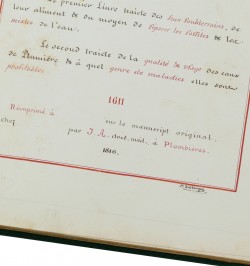 premier Livre traicte des feux soubterrains, de
leur aliment & du moyen de
de l'eau.
Le second traicte de la qualité & usage des eaux
de Plumière & à quel genre de maladies elles sont
profitables.
1611
Réimprimé à
sur le manuscript original,
chef
par J. A. doct. méd. à Plombières.
1816.